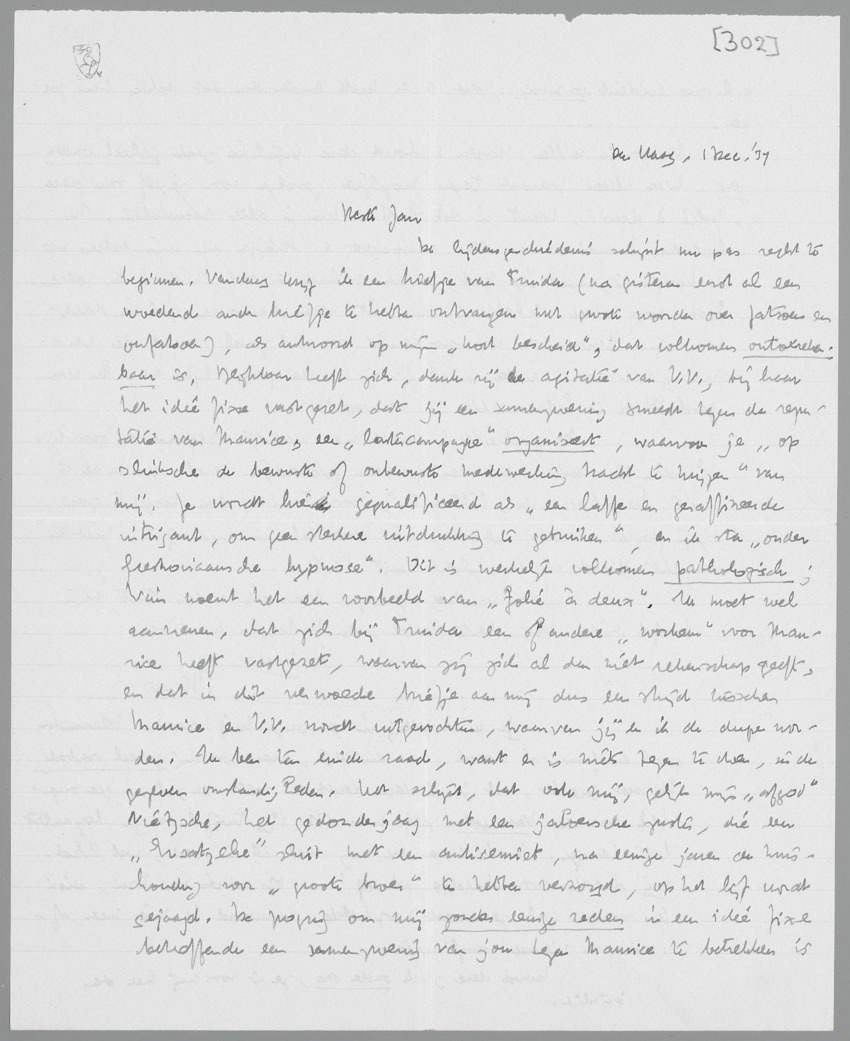 [302]
Den Haag, 1 Dec. '37
Beste Jan
De lijdensgeschiedenis schijnt nu pas recht te
beginnen. Vandaag krijg ik een briefje van Truida (na gisteren eerst al een
woedend ander briefje te hebben ontvangen met groote woorden over fatsoen en
onfatsoen), als antwoord op mijn „kort bescheid", dat volkomen ontoereken-
baar is. Blijkbaar heeft zich, dank zij de agitatie van V.V., bij haar
het idée fixe vastgezet, dat jij een samenzwering smeedt tegen de repu-
tatie van Maurice, een „lastercampagne" organiseert, waarvoor je „op
slinksche de bewuste of onbewuste medewerking tracht te krijgen" van
mij. Je wordt hier gequalificeerd als „een laffe en geraffineerde
intrigant, om geen sterkere uitdrukking te gebruiken", en ik sta „onder
Greshoviaansche hypnose". Dit is werkelijk volkomen pathologisch;
noemt het een voorbeeld van „folie à deux". Ik moet wel
aannemen, dat zich bij Truida een of andere „    " voor Mau-
rice heeft vastgezet, waarvan zij zich al dan niet rekenschap geeft,
en dat in dit verwoede briefje aan mij dus een strijd tusschen
Maurice en V.V. wordt uitgevochten, waarvan jij en ik de dupe wor-
den. Ik ben ten einde raad, want er is niets tegen te doen, in de
gegeven omstandigheden. Het schijnt, dat ook mij, gelijk mijn „afgod"
Nietzsche, het gedonderjaag met een jaloersche zuster, die een
„Ersatzehe" sluit met een antisemiet, na eenige jaren de huis-
houding voor „groote broer" te hebben verzorgd, op het lijf wordt
gejaagd. De poging om mij zonder eenige reden in een idée fixe
betreffende een samenzwering van jou tegen Maurice te betrekken is